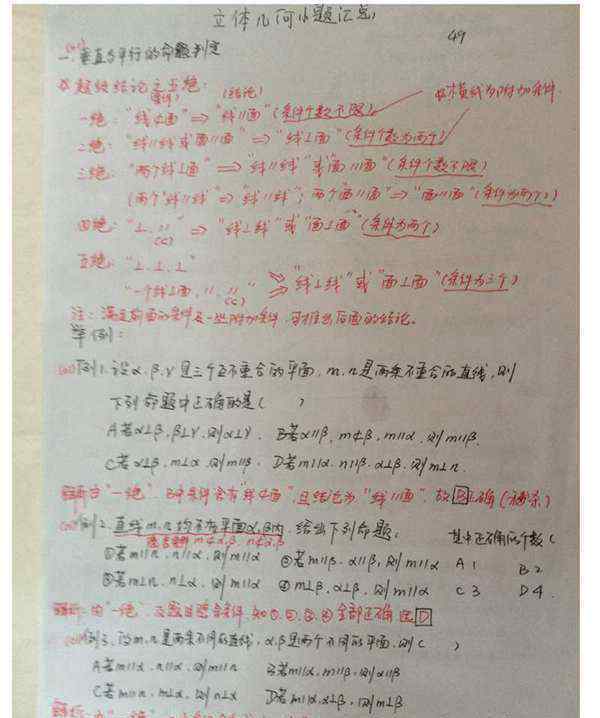 立体几何小题汇总
49
一、垂直与平行的命题判定
超级结论之五绝:
(条件) (结论)
一绝:"线⊄面"⇒"线∥面"(条件个数不限) 横线为附加条件.
二绝:"线∥线或面∥面"⇒"线⊥面"(条件个数为两个)
三绝:"两个线⊥面"⇒"线∥线"或"面∥面"(条件个数不限)
(两个"线∥线"⇒"线∥线";两个"面∥面"⇒"面∥面"(条件为两个))
四绝:"⊥,∥"⇒"线⊥线"或"面⊥面"(条件为两个)
(⊂)
五绝:"⊥,⊥,⊥"
"一个线⊥面,∥,∥" ⇒"线⊥线"或"面⊥面"(条件为三个)
(⊂)
注:满足前面的条件及一些附加条件,可推出后面的结论。
举例:
例1.设α,β,γ是三个互不重合的平面,m,n是两条不重合的直线,则
下列命题中正确的是( )
A若α⊥β,β⊥γ,则α⊥γ. B若α∥β,m⊄β,m∥α,则m∥β.
C若α⊥β,m⊥α,则m∥β. D若m∥α,n∥β,α⊥β,则m⊥n.
解析:由"一绝",B中条件含有"线⊄面",且结论为"线∥面",故B正确(秒杀)
例2.直线m,n均不在平面α,β内,给出下列命题: 其中正确的个数(
m⊄α,β n⊄α,β
①若m∥n,n∥α,则m∥α ②若m∥β,α∥β,则m∥α A 1 B 2
③若m⊥n,n⊥α,则m∥α ④m⊥β,α⊥β,则m∥α C 3 D 4.
解析:由"一绝",及题目隐含条件,知①,②,③,④全部正确选D
例3.设m,n是两条不同的直线,α,β是两个不同的平面,则( )
A若m∥α,n∥α,则m∥n B若m∥α,m∥β,则α∥β
C若m∥n,m⊥α,则n⊥α D若m∥α,α⊥β,则m⊥β